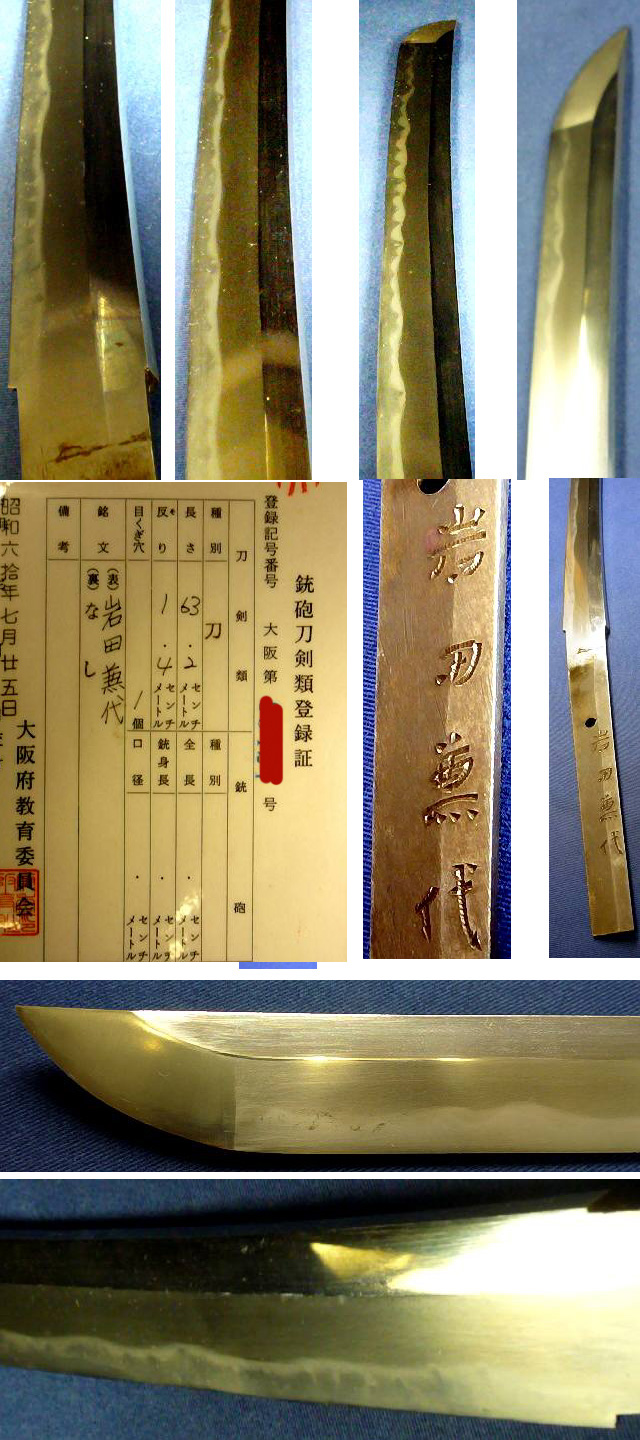 銃砲刀剣類登録証
登録記号番号 大阪第 号
刀剣類 銃砲
種別 刀 種別
長さ 63.2センチメートル 全長 ・ センチメートル
反り 1.4センチメートル 銃身長 ・ センチメートル
目くぎ穴 1個 口径 ・ センチメートル
銘文 (表) 岩田兼代
(裏) なし
備考
昭和六拾年七月廿五日
大阪府教育委員会
岩田兼代
岩田兼代